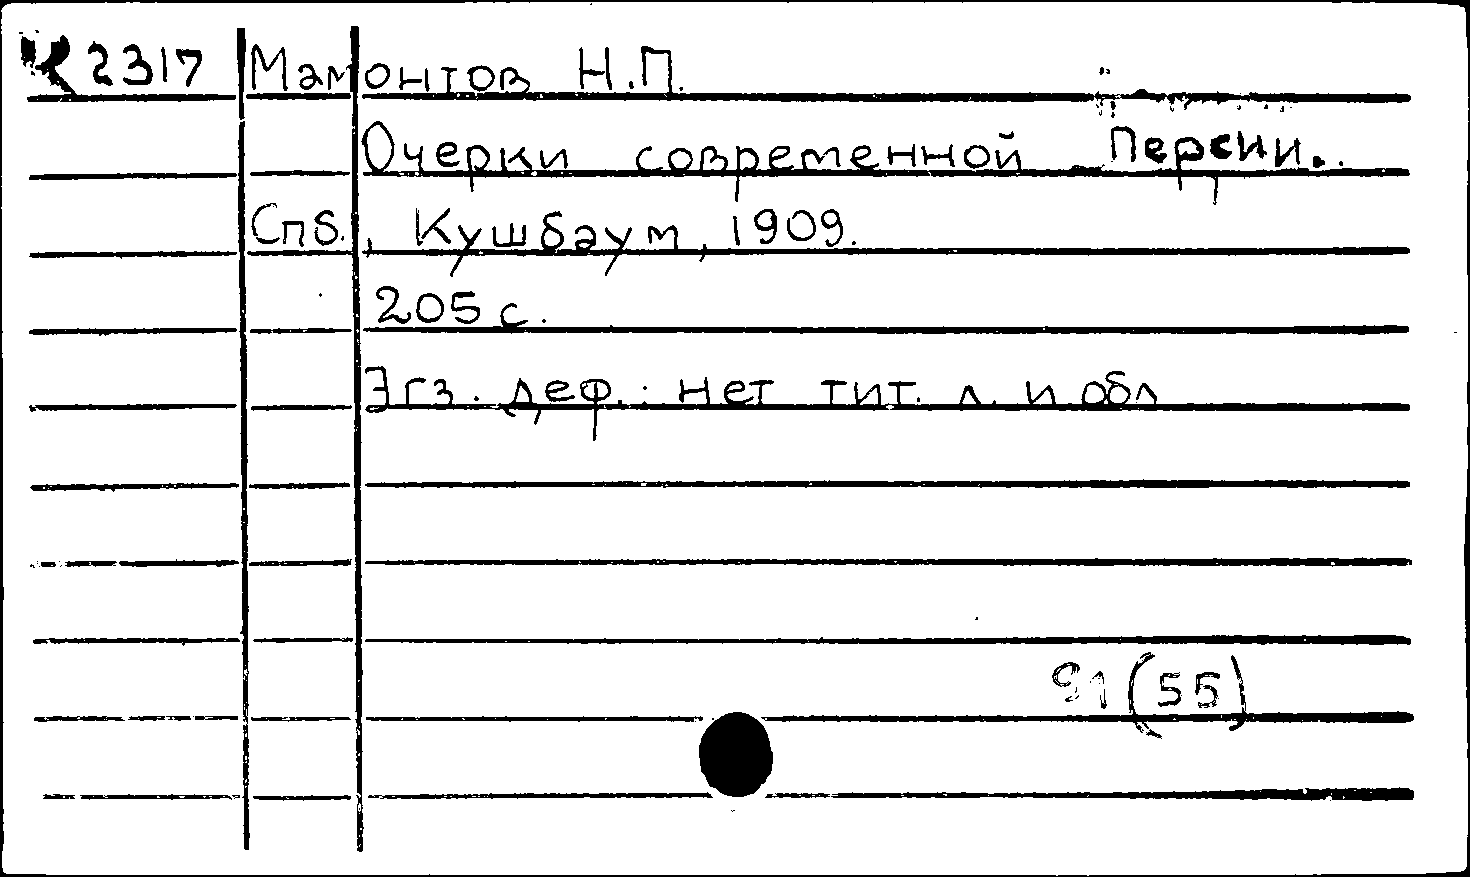 К 2317 Мамонтов Н.П.
Очерки современной Персии.
Спб., Кушбаум, 1909.
205 с.
Экз. деф.: нет тит. л. и обл
91(55)